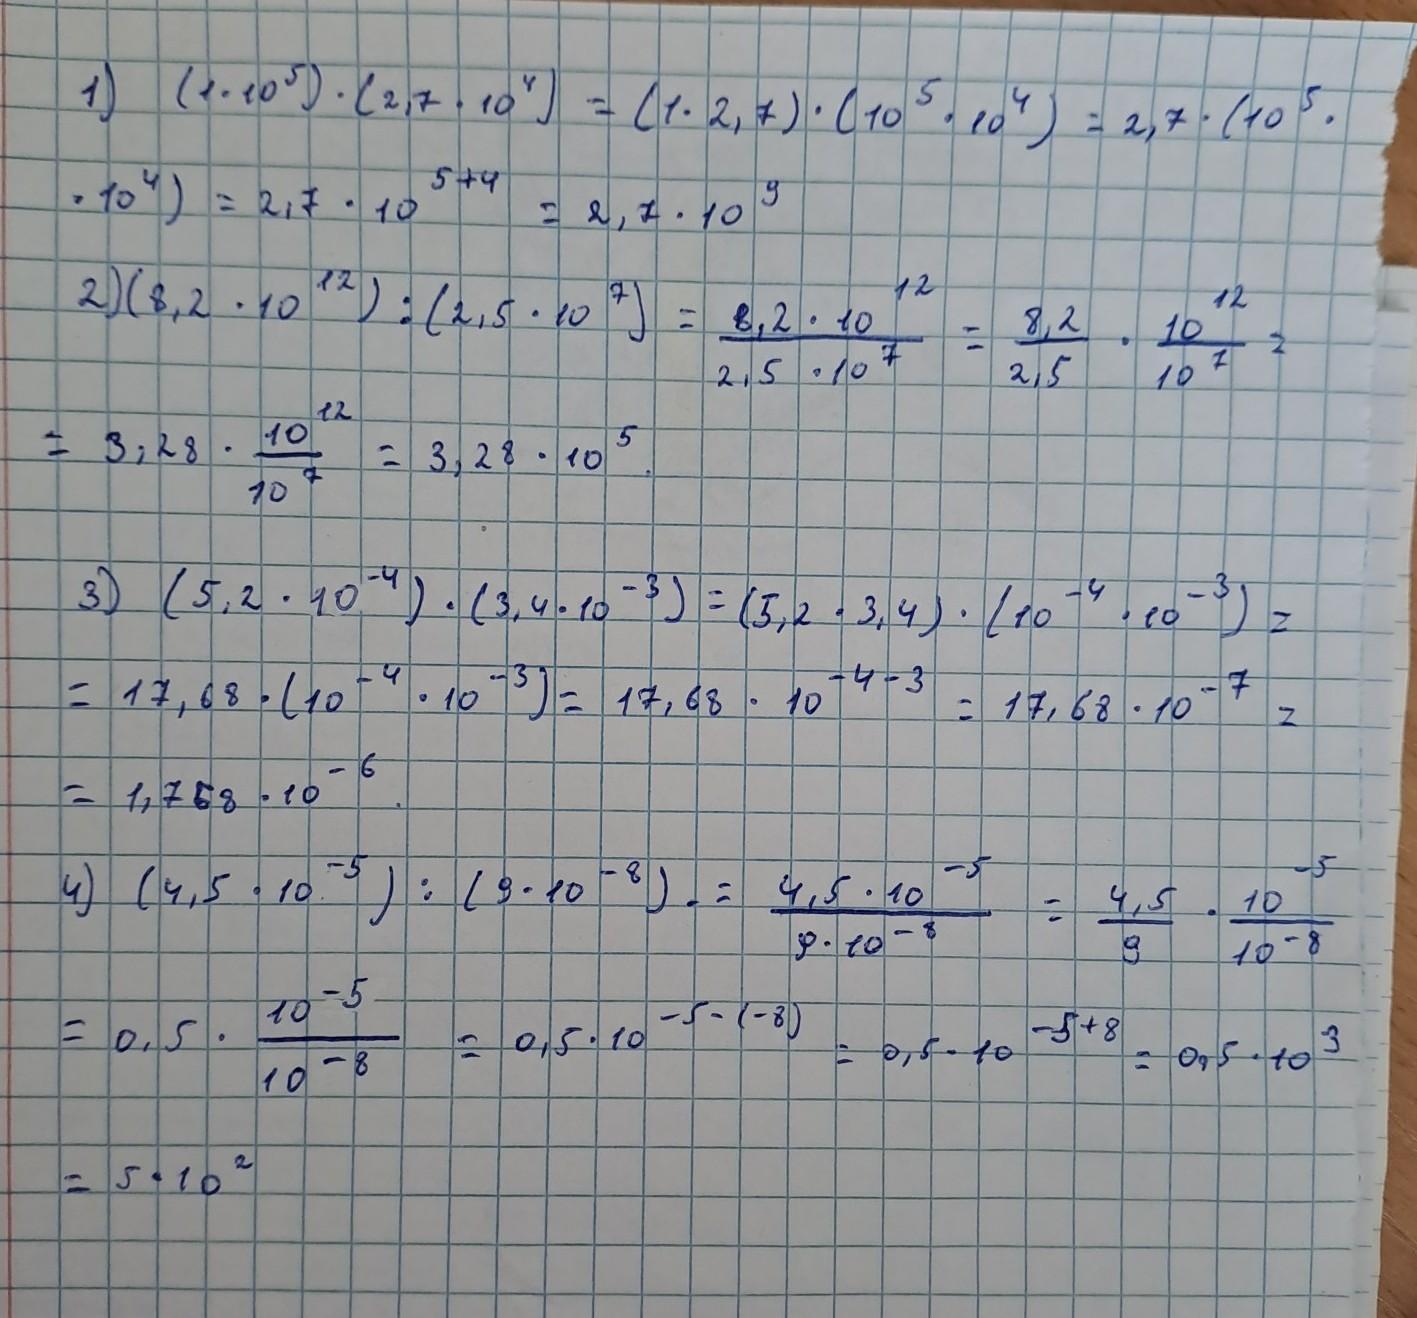 1) (1·10⁵)·(2,7·10⁴) = (1·2,7)·(10⁵·10⁴) = 2,7·(10⁵·
·10⁴) = 2,7·10⁵⁺⁴ = 2,7·10⁹
2) (8,2·10¹²):(2,5·10⁷) = (8,2·10¹²)/(2,5·10⁷) = 8,2/2,5 · 10¹²/10⁷ =
= 3,28 · 10¹²/10⁷ = 3,28·10⁵.
3) (5,2·10⁻⁴)·(3,4·10⁻³) = (5,2·3,4)·(10⁻⁴·10⁻³) =
= 17,68·(10⁻⁴·10⁻³) = 17,68·10⁻⁴⁻³ = 17,68·10⁻⁷ =
= 1,768·10⁻⁶.
4) (4,5·10⁻⁵):(9·10⁻⁸) = (4,5·10⁻⁵)/(9·10⁻⁸) = 4,5/9 · 10⁻⁵/10⁻⁸
= 0,5 · 10⁻⁵/10⁻⁸ = 0,5·10⁻⁵⁻⁽⁻⁸⁾ = 0,5·10⁻⁵⁺⁸ = 0,5·10³
= 5·10²